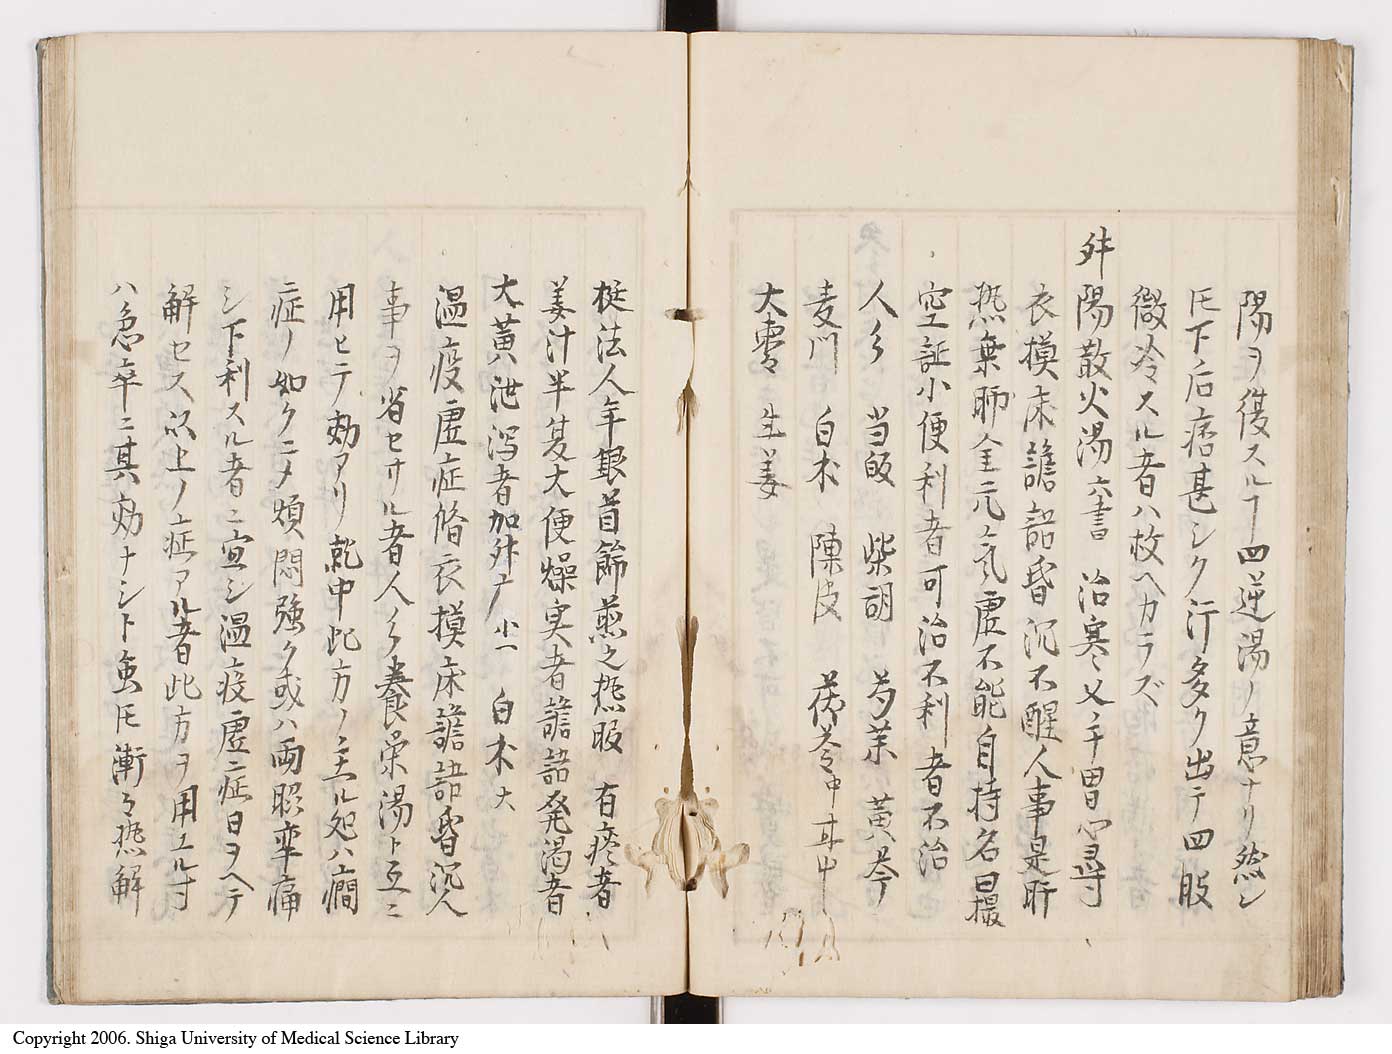 陽ヲ復スルヿ四逆湯ノ意ナリ然シ
𪜈下后痞甚シク汗多ク出テ四肢
微冷スル者ハ枚ヘカラズ
舛陽散火湯六書 治寒 叉手冒胸尋
衣摸床譫語昏沉不醒人事是肝
熱乗肺金元氣虚不能自持名曰撮
空証小便利者可治不利者不治
人参 当皈 柴胡 芍薬 黄芩
麦門 白朮 陳皮 茯苓中甘中
大棗 生姜
挺法人年銀首餙煎之熱服 有痰者
姜汁半夏大便燥実者譫語発渇者
大黄泄瀉者加舛广小一 白朮大
温疫虚症脩衣摸床譫語昏沉人
事ヲ省セサル者人参養栄湯ト互ニ
用ヒテ効アリ就中此方ノ主ル処ハ癇
症ノ如クニメ煩悶強ク或ハ両眼牽痛
シ下利スル者ニ宜シ温疫虚症日ヲヘテ
解セス以上ノ症アル者此方ヲ用エル寸
ハ急卒ニ其効ナシト虽𪜈漸々熱解
Copyright 2006. Shiga University of Medical Science Library